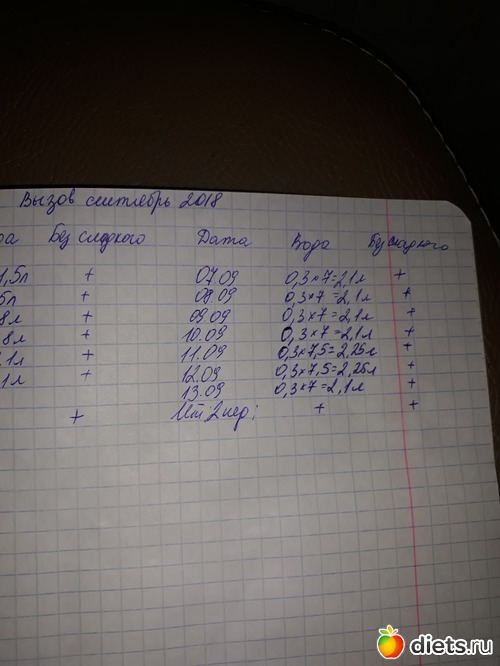 Вызов сентябрь 2018
да Без сладкого Дата Вода Без сладкого
1,5л + 07.09 0,3×7=2,1л +
5л + 08.09 0,3×7=2,1л +
8л + 09.09 0,3×7=2,1л +
8л + 10.09 0,3×7=2,1л +
1л + 11.09 0,3×7,5=2,25л +
1л + 12.09 0,3×7,5=2,25л +
13.09 0,3×7=2,1л +
+ 2нед: + +
diets.ru